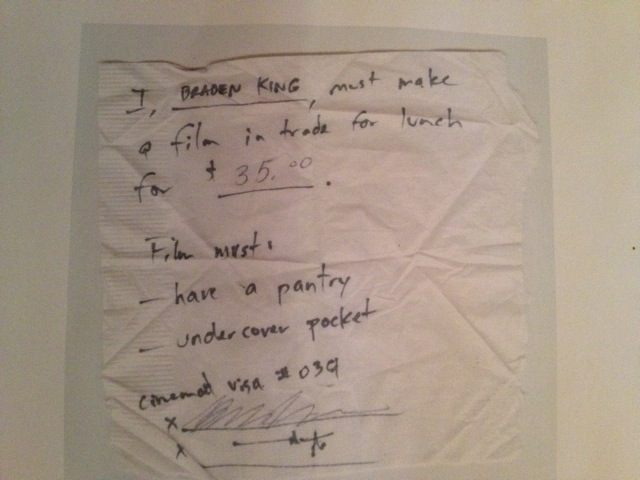 I, BRADEN KING, must make
a film in trade for lunch
for $ 35.00.
Film must:
– have a pantry
– undercover pocket
cinemad visa # 039
x
date
x